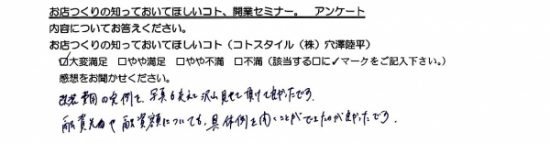 お店つくりの知っておいてほしいコト、開業セミナー。　アンケート
内容についてお答えください。
お店つくりの知っておいてほしいコト（コトスタイル（株）穴澤陸平）
☑大変満足　□やや満足　□やや不満　□不満（該当する□に✓マークをご記入下さい。）
感想をお聞かせください。
改装費用の実例を、写真も交え沢山見せて頂けて良かったです。
融資先や融資額についても、具体例を聞くことができたのが良かったです。